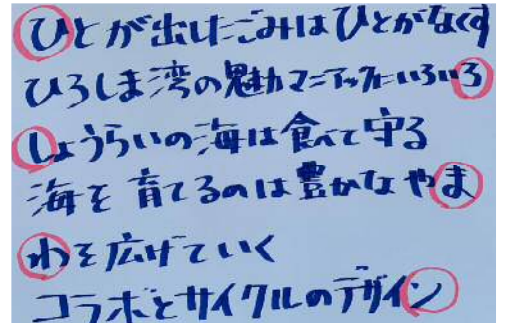 ひとが出したごみはひとがなくす
ひろしま湾の魅力マニアックにいろいろ
しょうらいの海は食べて守る
海を育てるのは豊かなやま
わを広げていく
コラボとサイクルのデザイン